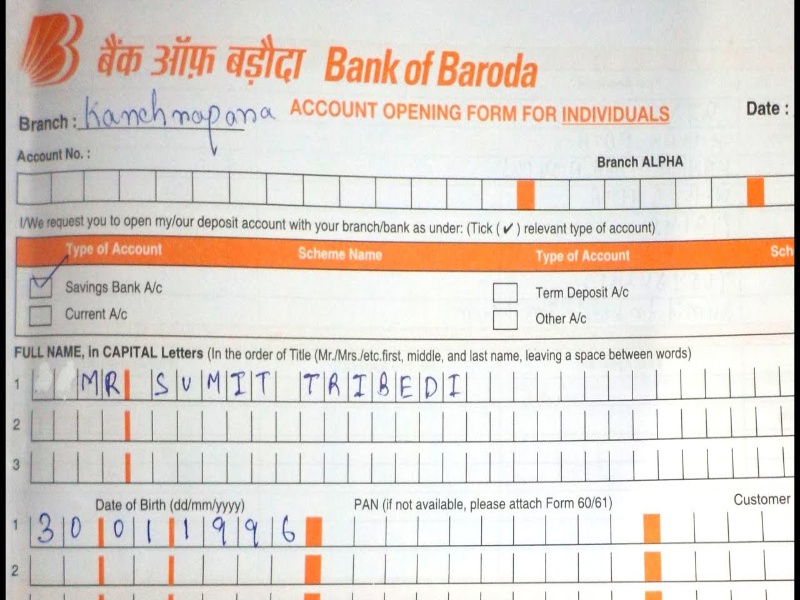 बैंक ऑफ़ बड़ौदा Bank of Baroda
Branch : Kanchnapana ACCOUNT OPENING FORM FOR INDIVIDUALS Date :
Account No. : Branch ALPHA
I/We request you to open my/our deposit account with your branch/bank as under: (Tick ( ✓ ) relevant type of account)
Type of Account Scheme Name Type of Account Sch
✓ Savings Bank A/c Term Deposit A/c
Current A/c Other A/c
FULL NAME, in CAPITAL Letters (In the order of Title (Mr./Mrs./etc.first, middle, and last name, leaving a space between words)
1 MR SUMIT TRIBEDI
2
3
Date of Birth (dd/mm/yyyy) PAN (if not available, please attach Form 60/61) Customer
1 30 01 1996
2